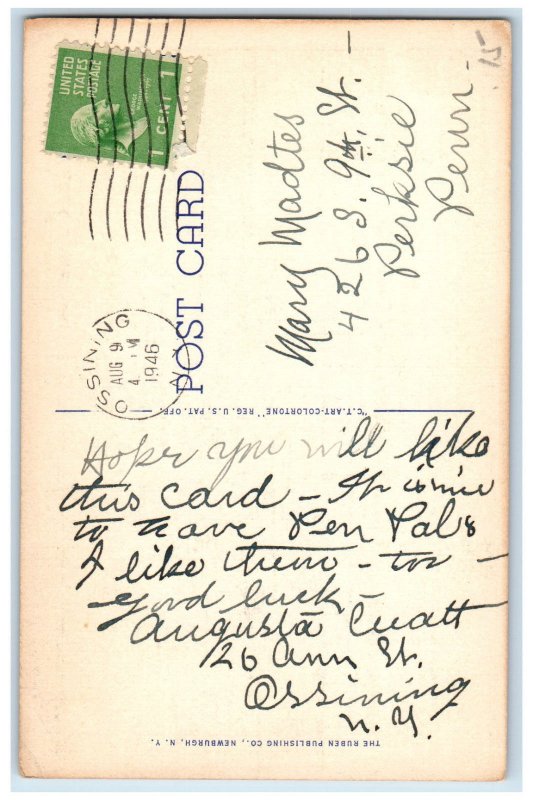 15
UNITED
STATES
POSTAGE
1 CENT 1
OSSINING
AUG 9
4 PM
1946
N.Y.
POST CARD
Mary Madtes
426 S. 9th. St. -
Perksie
Penn -
"C.T. ART-COLORTONE" REG. U.S. PAT. OFF.
Hope you will like
this card - It is nice
to have Pen Pals
I like them - too -
good luck -
Augusta Cuatt
26 Ann St.
Ossining
N.Y.
THE RUBEN PUBLISHING CO., NEWBURGH, N. Y.